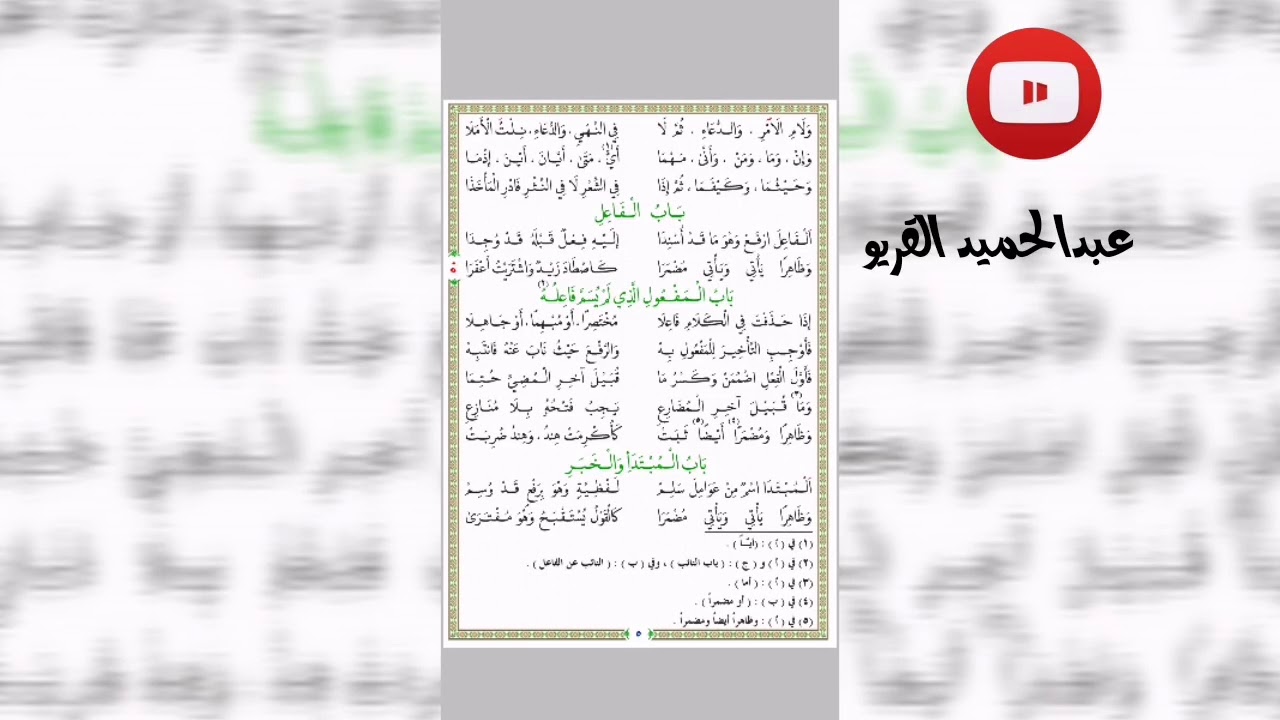 وَلَامِ الْأَمْرِ ، وَالدُّعَاءِ ، ثُمَّ لَا فِي النَّهْيِ ، وَالدُّعَاءِ ، نِلْتَ الْأَمَلَا
وَإِنْ ، وَمَا ، وَمَنْ ، وَأَنَّى ، مَهْمَا أَيٌّ(١) ، مَتَى ، أَيَّانَ ، أَيْنَ ، إِذْمَا
وَحَيْثُمَا ، وَكَيْفَمَا ، ثُمَّ إِذَا فِي الشِّعْرِ لَا فِي النَّثْرِ فَادْرِ الْمَأْخَذَا
بَابُ الْفَاعِلِ
اَلْفَاعِلَ ارْفَعْ وَهْوَ مَا قَدْ أُسْنِدَا إِلَيْهِ فِعْلٌ قَبْلَهُ قَدْ وُجِدَا
وَظَاهِرًا يَأْتِي وَيَأْتِي مُضْمَرَا كَاصْطَادَ زَيْدٌ وَاشْتَرَيْتُ أَعْفَرَا
٥
بَابُ الْمَفْعُولِ الَّذِي لَمْ يُسَمَّ فَاعِلُهُ(٢)
إِذَا حَذَفْتَ فِي الْكَلَامِ فَاعِلَا مُخْتَصِرًا ، أَوْ مُبْهِمًا ، أَوْ جَاهِلَا
فَأَوْجِبِ التَّأْخِيرَ لِلْمَفْعُولِ بِهْ وَالرَّفْعَ حَيْثُ نَابَ عَنْهُ فَانْتَبِهْ
فَأَوَّلَ الْفِعْلِ اضْمُمَنْ وَكَسْرُ مَا قُبَيْلَ آخِرِ الْمُضِيِّ حُتِمَا
وَمَا(٣) قُبَيْلَ آخِرِ الْمُضَارِعِ يَجِبُ فَتْحُهُ بِلَا مُنَازِعِ
وَظَاهِرًا وَمُضْمَرًا(٤) أَيْضًا(٥) ثَبَتْ كَأُكْرِمَتْ هِنْدٌ ، وَهِنْدٌ ضُرِبَتْ
بَابُ الْمُبْتَدَأِ وَالْخَبَرِ
اَلْمُبْتَدَا اسْمٌ مِنْ عَوَامِلَ سَلِمْ لَفْظِيَّةٍ وَهْوَ بِرَفْعٍ قَدْ وُسِمْ
وَظَاهِرًا يَأْتِي وَيَأْتِي مُضْمَرَا كَالْقَوْلُ يُسْتَقْبَحُ وَهْوَ مُفْتَرَى
(١) في (أ) : (أيّاً) .
(٢) في (أ) و (ج) : (باب النائب) ، وفي (ب) : (النائب عن الفاعل) .
(٣) في (أ) : (أما) .
(٤) في (ب) : (أو مضمراً) .
(٥) في (أ) : وظاهراً أيضاً ومضمراً .
٥
عبدالحميد القريو